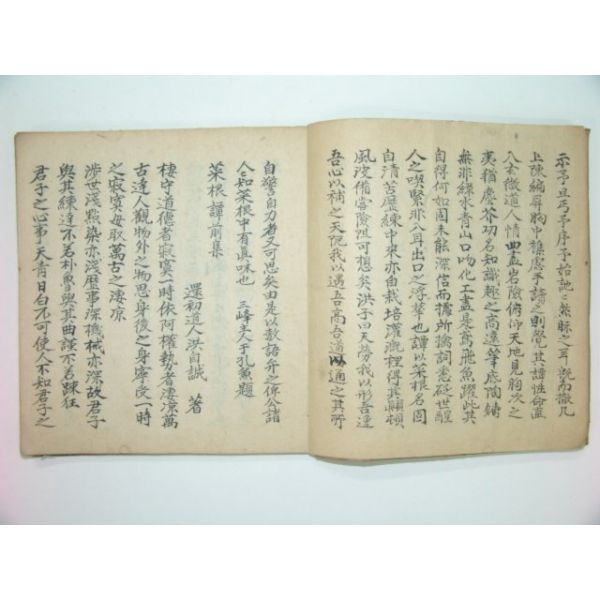 示予且丐予序予始訑訑然眎之耳旣而徹几
上陳編屛胸中雜慮手讀之則覺其譚性命直
入玄微道人情曲盡岩險俯仰天地見胸次之
夷猶塵芥功名知識趣之高遠筆底陶鑄
無非綠水靑山口吻化工盡是鳶飛魚躍此其
自得何如固未能深信而據所摛詞悉砭世醒
人之喫緊非入耳出口之浮華也譚以菜根名固
自淸苦歷練中來亦自栽培灌漑裡得其顚頓
風波備嘗險阻可想矣洪子曰天勞我以形吾逸
吾心以補之天阨我以遇吾高吾道以通之其所
自警自力者又可思矣由是以數語弁之俾公諸
人人知菜根中有眞味也 三峰主人于孔兼題
菜根譚前集
還初道人洪自誠 著
棲守道德者寂寞一時依阿權勢者凄凉萬
古達人觀物外之物思身後之身寧受一時
之寂寞毋取萬古之凄凉
涉世淺點染亦淺歷事深機械亦深故君子
與其練達不若朴魯與其曲謹不若踈狂
君子之心事天靑日白不可使人不知君子之